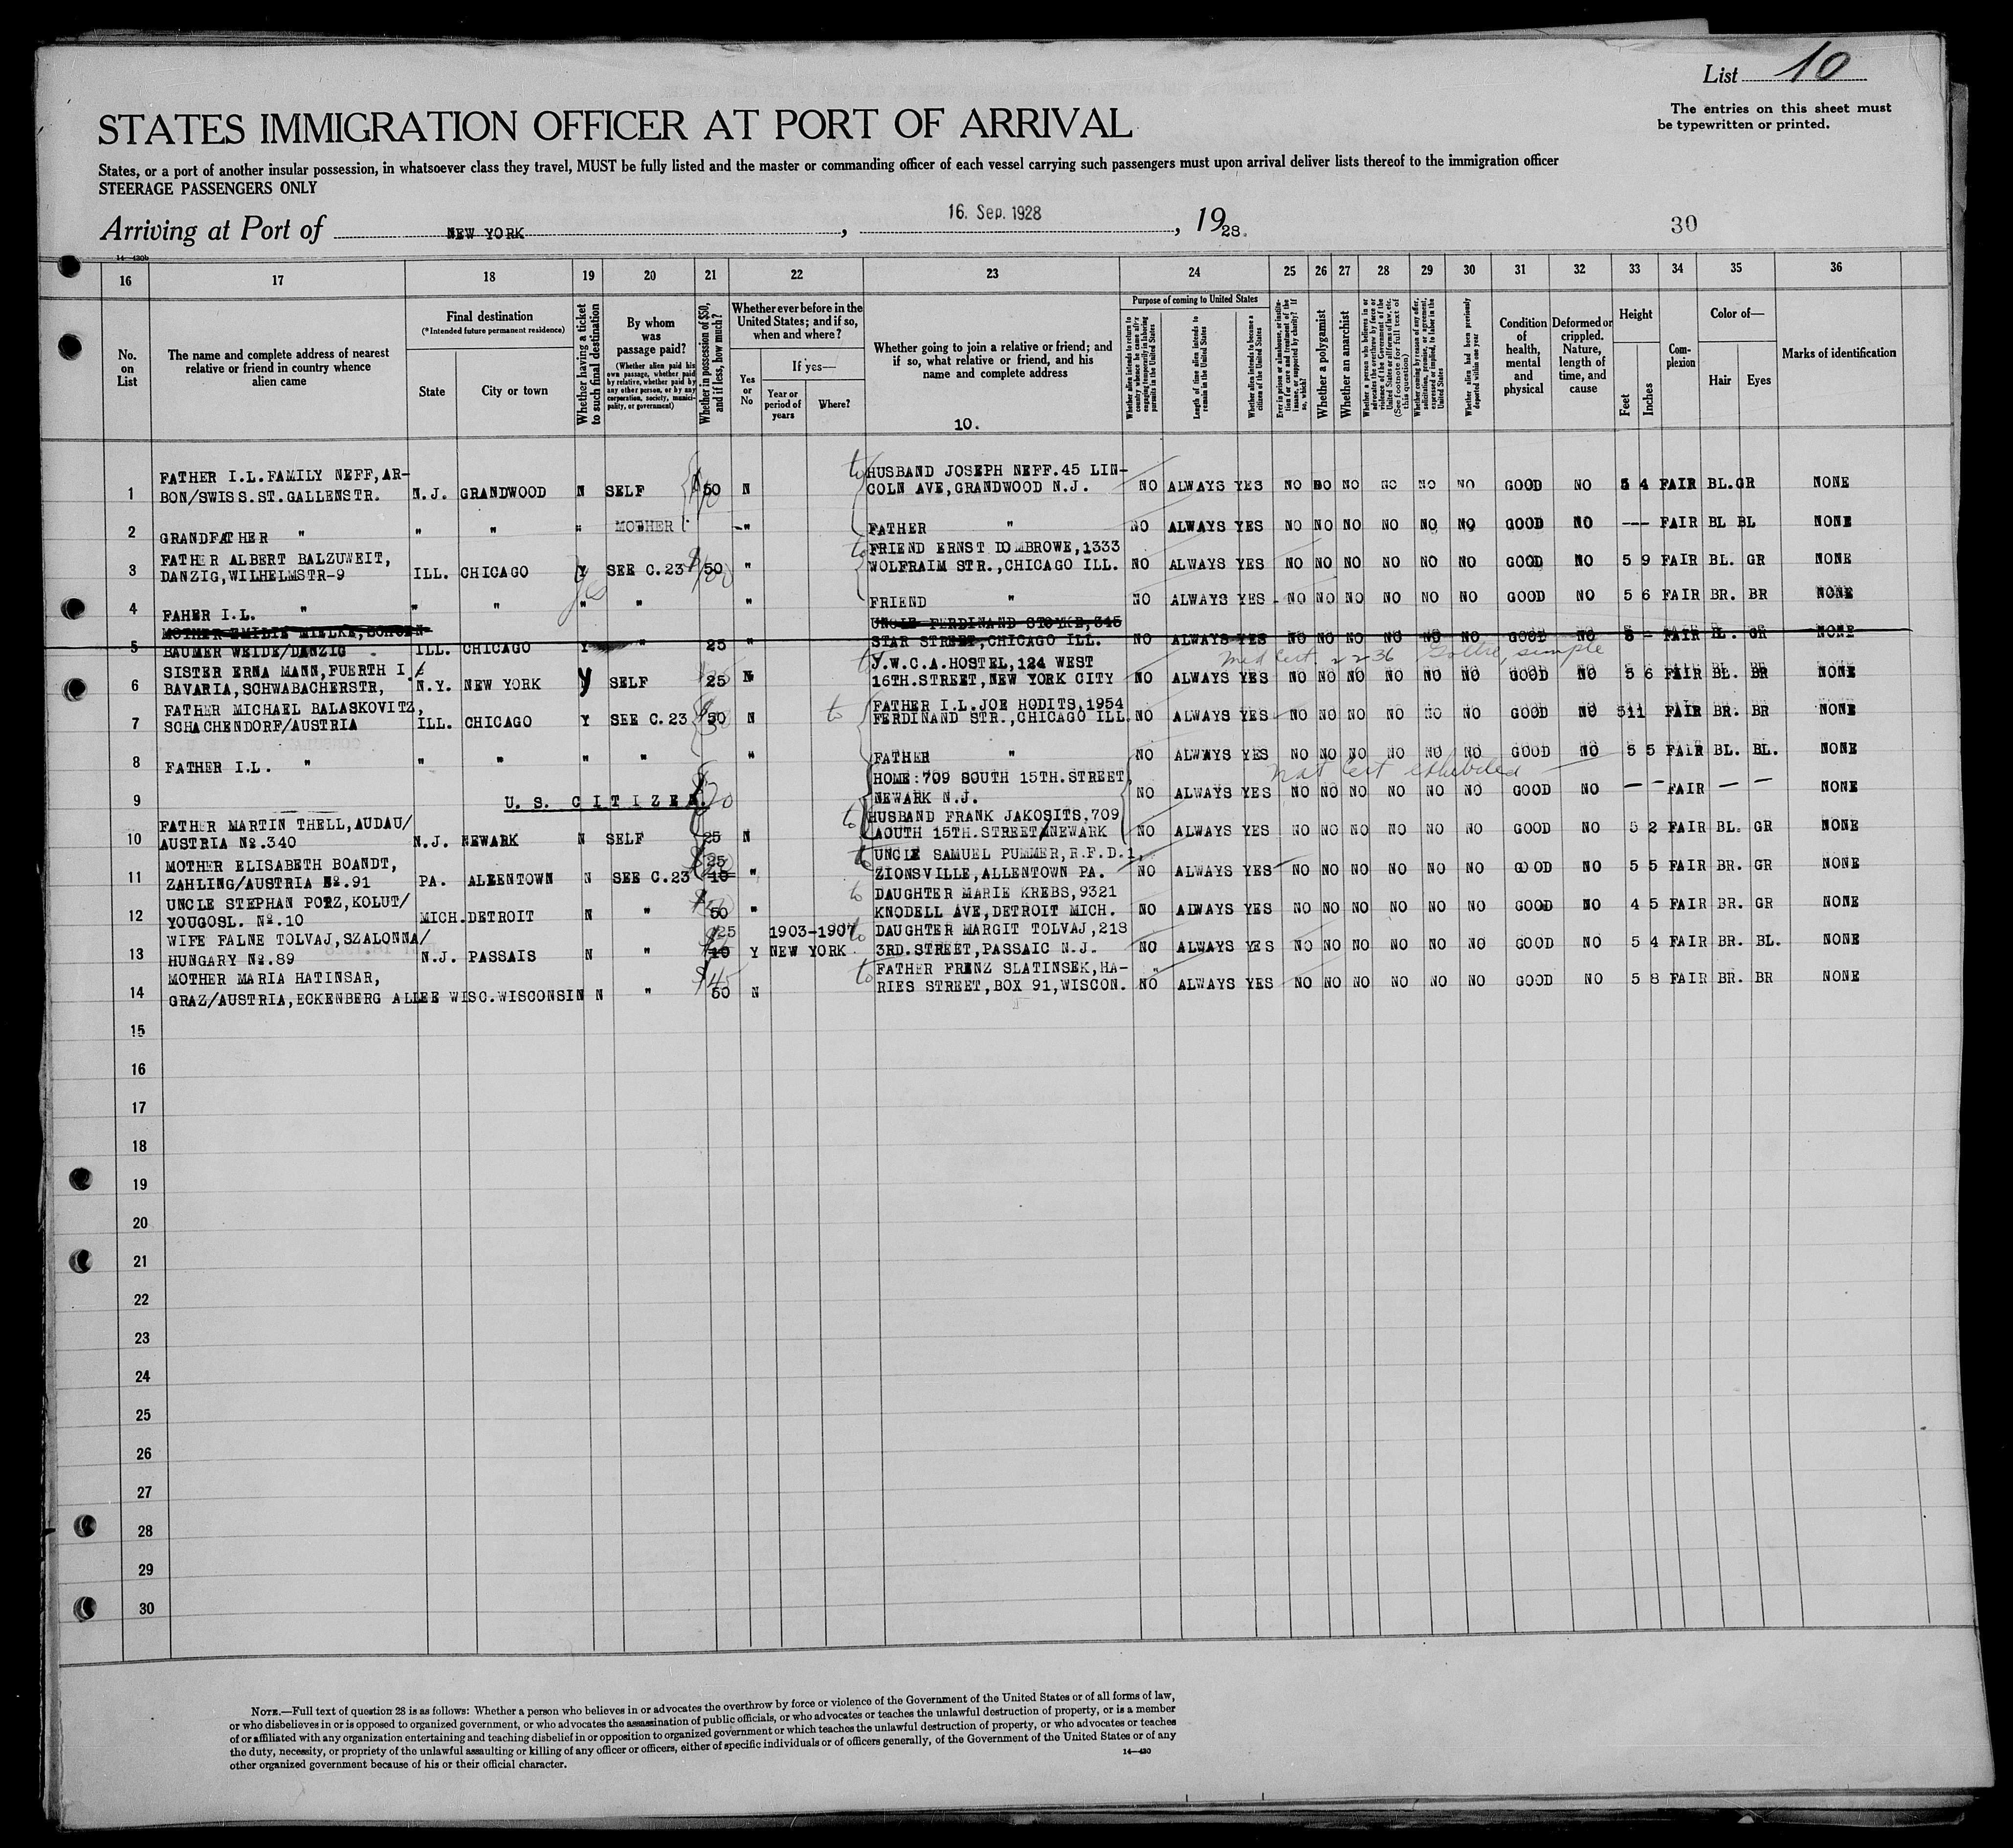 List 10
The entries on this sheet must
be typewritten or printed.
STATES IMMIGRATION OFFICER AT PORT OF ARRIVAL
States, or a port of another insular possession, in whatsoever class they travel, MUST be fully listed and the master or commanding officer of each vessel carrying such passengers must upon arrival deliver lists thereof to the immigration officer
STEERAGE PASSENGERS ONLY
Arriving at Port of NEW YORK, 16. Sep. 1928, 1928.
30
14—430b
16 17 18 19 20 21 22 23 24 25 26 27 28 29 30 31 32 33 34 35 36
No. on List
The name and complete address of nearest relative or friend in country whence alien came
Final destination
(*Intended future permanent residence)
State
City or town
Whether having a ticket to such final destination
By whom was passage paid?
(Whether alien paid his own passage, whether paid by relative, whether paid by any other person, or by any corporation, society, municipality, or government)
Whether in possession of $50, and if less, how much?
Whether ever before in the United States; and if so, when and where?
Yes or No
If yes—
Year or period of years
Where?
Whether going to join a relative or friend; and if so, what relative or friend, and his name and complete address
10.
Purpose of coming to United States
Whether alien intends to return to country whence he came after engaging temporarily in laboring pursuits in the United States
Length of time alien intends to remain in the United States
Whether alien intends to become a citizen of the United States
Ever in prison or almshouse, or institution for care and treatment of the insane, or supported by charity? If so, which?
Whether a polygamist
Whether an anarchist
Whether a person who believes in or advocates the overthrow by force or violence of the Government of the United States or all forms of law, etc. (See footnote for full text of this question)
Whether coming by reason of any offer, solicitation, promise, or agreement, expressed or implied, to labor in the United States
Whether alien had been previously deported within one year
Condition of health, mental and physical
Deformed or crippled. Nature, length of time, and cause
Height
Feet
Inches
Complexion
Color of—
Hair
Eyes
Marks of identification
FATHER I.L.FAMILY NEFF,AR- to HUSBAND JOSEPH NEFF.45 LIN-
1 BON/SWISS.ST.GALLENSTR. N.J. GRANDWOOD N SELF 50 N COLN AVE,GRANDWOOD N.J. NO ALWAYS YES NO NO NO NO NO NO GOOD NO 5 4 FAIR BL.GR NONE
2 GRANDFATHER " " " " MOTHER " FATHER " NO ALWAYS YES NO NO NO NO NO NO GOOD NO --- FAIR BL BL NONE
FATHER ALBERT BALZUWEIT, to FRIEND ERNST DOMBROWE,1333
3 DANZIG,WILHELMSTR-9 ILL. CHICAGO Y SEE C.23 50 " WOLFRAIM STR.,CHICAGO ILL. NO ALWAYS YES NO NO NO NO NO NO GOOD NO 5 9 FAIR BL. GR NONE
yes
4 FAHER I.L. " " " " " " FRIEND " NO ALWAYS YES NO NO NO NO NO NO GOOD NO 5 6 FAIR BR. BR NONE
MOTHER EMILIE MIELKE, UNCLE FERDINAND STOYKE,345
5 BAUMER WEIDE/DANZIG ILL. CHICAGO Y " 25 " STAR STREET,CHICAGO ILL. NO ALWAYS YES NO NO NO NO NO NO GOOD NO 5 - FAIR BL. GR NONE
Med Cert. 2236 Goitre, simple
SISTER ERNA MANN,FUERTH I./ to Y.W.C.A.HOSTEL,124 WEST
6 BAVARIA,SCHWABACHERSTR, N.Y. NEW YORK Y SELF 25 N 16TH.STREET,NEW YORK CITY NO ALWAYS YES NO NO NO NO NO NO GOOD NO 5 6 FAIR BL. BR NONE
FATHER MICHAEL BALASKOVITZ, to FATHER I.L.JOE HODITS,1954
7 SCHACHENDORF/AUSTRIA ILL. CHICAGO Y SEE C.23 50 N FERDINAND STR.,CHICAGO ILL. NO ALWAYS YES NO NO NO NO NO NO GOOD NO 511 FAIR BR. BR NONE
8 FATHER I.L. " " " " " " FATHER " NO ALWAYS YES NO NO NO NO NO NO GOOD NO 5 5 FAIR BL. BL. NONE
HOME:709 SOUTH 15TH.STREET, Nat Cert exhibited
9 U. S. CITIZEN. NEWARK N.J. NO ALWAYS YES NO NO NO NO NO NO GOOD NO — — FAIR — — NONE
FATHER MARTIN THELL,AUDAU/ to HUSBAND FRANK JAKOSITS,709
10 AUSTRIA No.340 N.J. NEWARK N SELF 25 N AOUTH 15TH.STREET/NEWARK NO ALWAYS YES NO NO NO NO NO NO GOOD NO 5 2 FAIR BL. GR NONE
MOTHER ELISABETH BOANDT, 25 to UNCLE SAMUEL PUMMER,R.F.D.1,
11 ZAHLING/AUSTRIA No.91 PA. ALLENTOWN N SEE C.23 10 " ZIONSVILLE,ALLENTOWN PA. NO ALWAYS YES NO NO NO NO NO NO GOOD NO 5 5 FAIR BR. GR NONE
UNCLE STEPHAN PORZ,KOLUT/ to DAUGHTER MARIE KREBS,9321
12 YOUGOSL. No.10 MICH.DETROIT N " 50 " KNODELL AVE,DETROIT MICH. NO ALWAYS YES NO NO NO NO NO NO GOOD NO 4 5 FAIR BR. GR NONE
WIFE FALNE TOLVAJ,SZALONNA/ 25 1903-1907 to DAUGHTER MARGIT TOLVAJ,218
13 HUNGARY No.89 N.J. PASSAIS N " 10 Y NEW YORK 3RD.STREET,PASSAIC N.J. NO ALWAYS YES NO NO NO NO NO NO GOOD NO 5 4 FAIR BR. BL. NONE
MOTHER MARIA HATINSAR, $45 to FATHER FRENZ SLATINSEK,HA-
14 GRAZ/AUSTRIA,ECKENBERG ALLEE WISC.WISCONSIN N " 50 N RIES STREET,BOX 91,WISCON. NO ALWAYS YES NO NO NO NO NO NO GOOD NO 5 8 FAIR BR. BR NONE
15
16
17
18
19
20
21
22
23
24
25
26
27
28
29
30
NOTE.—Full text of question 28 is as follows: Whether a person who believes in or advocates the overthrow by force or violence of the Government of the United States or of all forms of law,
or who disbelieves in or is opposed to organized government, or who advocates the assassination of public officials, or who advocates or teaches the unlawful destruction of property, or is a member
of or affiliated with any organization entertaining and teaching disbelief in or opposition to organized government or which teaches the unlawful destruction of property, or who advocates or teaches
the duty, necessity, or propriety of the unlawful assaulting or killing of any officer or officers, either of specific individuals or of officers generally, of the Government of the United States or of any
other organized government because of his or their official character.
14—430